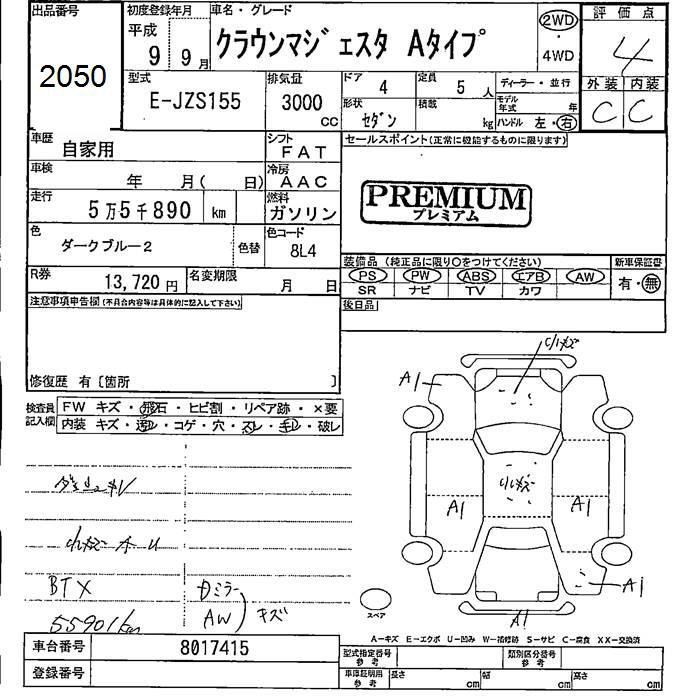 出品番号
2050
初度登録年月
平成
9年9月
車名・グレード
クラウンマジェスタ Aタイプ
2WD
・
4WD
評価点
4
外装 内装
C C
型式
E-JZS155
排気量
3000
cc
ドア 4
定員 5 人
形状 セダン
積載 kg
ディーラー・並行
モデル年式 年
ハンドル 左・右
車歴
自家用
シフト
FAT
セールスポイント(正常に機能するものに限ります)
車検
年 月( 日)
冷房
AAC
PREMIUM
プレミアム
走行
5万5千890 km
燃料
ガソリン
色
ダークブルー2
色替
色コード
8L4
装備品 (純正品に限り○をつけてください)
新車保証書
PS PW ABS エアB AW
有・無
SR ナビ TV カワ
R券
13,720 円
名変期限
月 日
後日品
注意事項申告欄(不具合内容等は具体的に記入して下さい)
修復歴 有〔箇所 〕
検査員
記入欄
FW キズ・飛石・ヒビ割・リペア跡・×要
内装 キズ・汚レ・コゲ・穴・スレ・キレ・破レ
小キズ
A1
A1
A1
小キズ
A1
A1
小キズ A U
BTX
Dミラー
AW
キズ
55901km
スペア
A1
A－キズ E－エクボ U－凹み W－補修跡 S－サビ C－腐食 XX－交換済
車台番号 8017415
登録番号
型式指定番号
参考
類別区分番号
参考
車庫証明用
参考
長さ cm
幅 cm
高さ cm